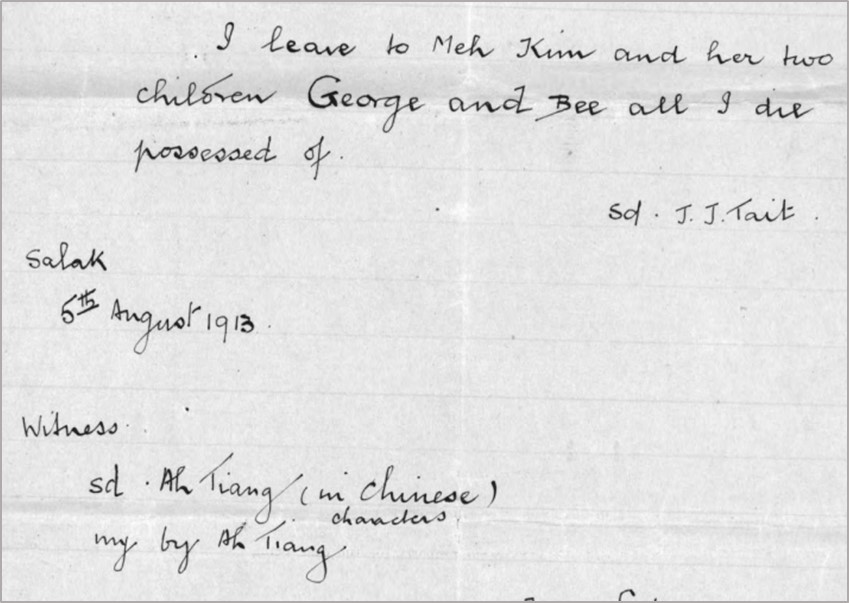 I leave to Meh Kim and her two
children George and Bee all I die
possessed of.
sd. J. J. Tait.
Salak
5th August 1913.
Witness.
sd. Ah Tiang (in Chinese)
characters
my by Ah Tiang